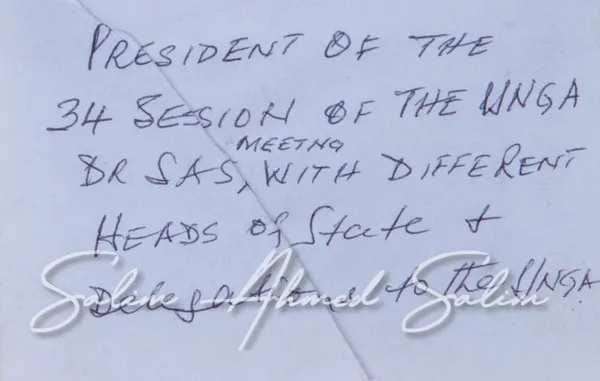 PRESIDENT OF THE
34 SESSION OF THE UNGA
MEETNG
DR SAS, WITH DIFFERENT
HEADS of State +
Delegations to the UNGA
Salim Ahmed Salim